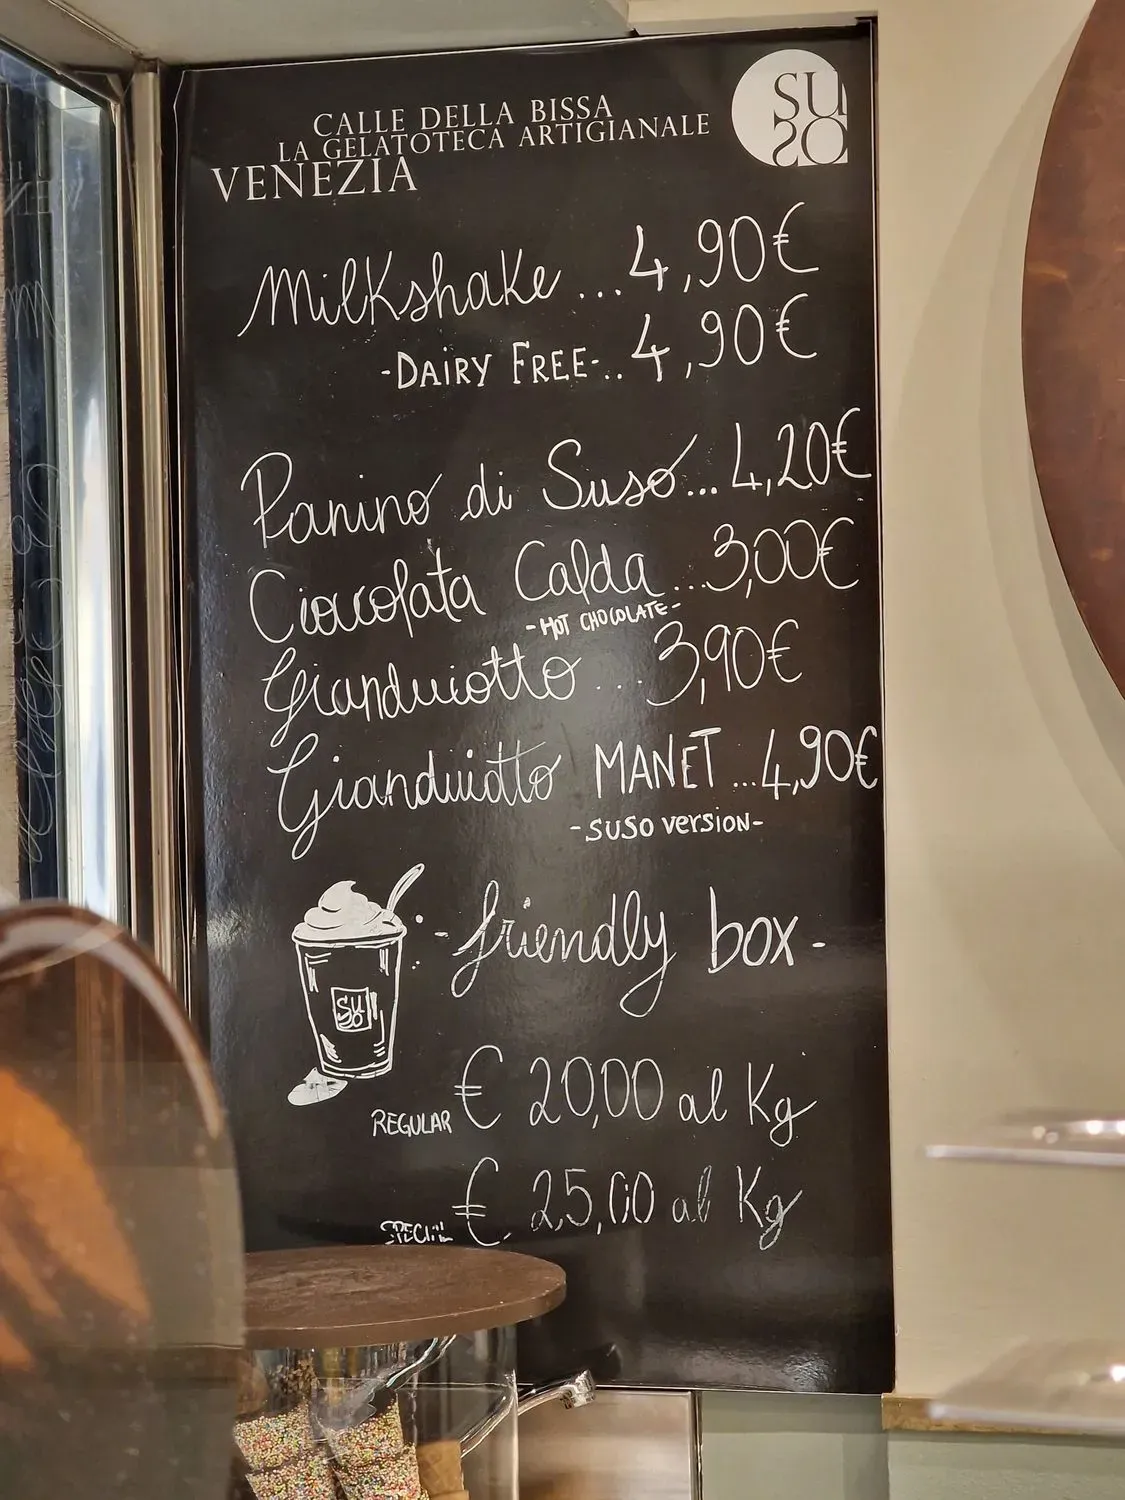 CALLE DELLA BISSA
LA GELATOTECA ARTIGIANALE
VENEZIA
SUSO
Milkshake ... 4,90€
-DAIRY FREE-.. 4,90€
Panino di Suso... 4,20€
Cioccolata Calda ... 3,00€
-HOT CHOCOLATE-
Gianduiotto ... 3,90€
Gianduiotto MANET ... 4,90€
-SUSO version-
-friendly box-
SUSO
REGULAR € 20,00 al Kg
SPECIAL € 25,00 al Kg